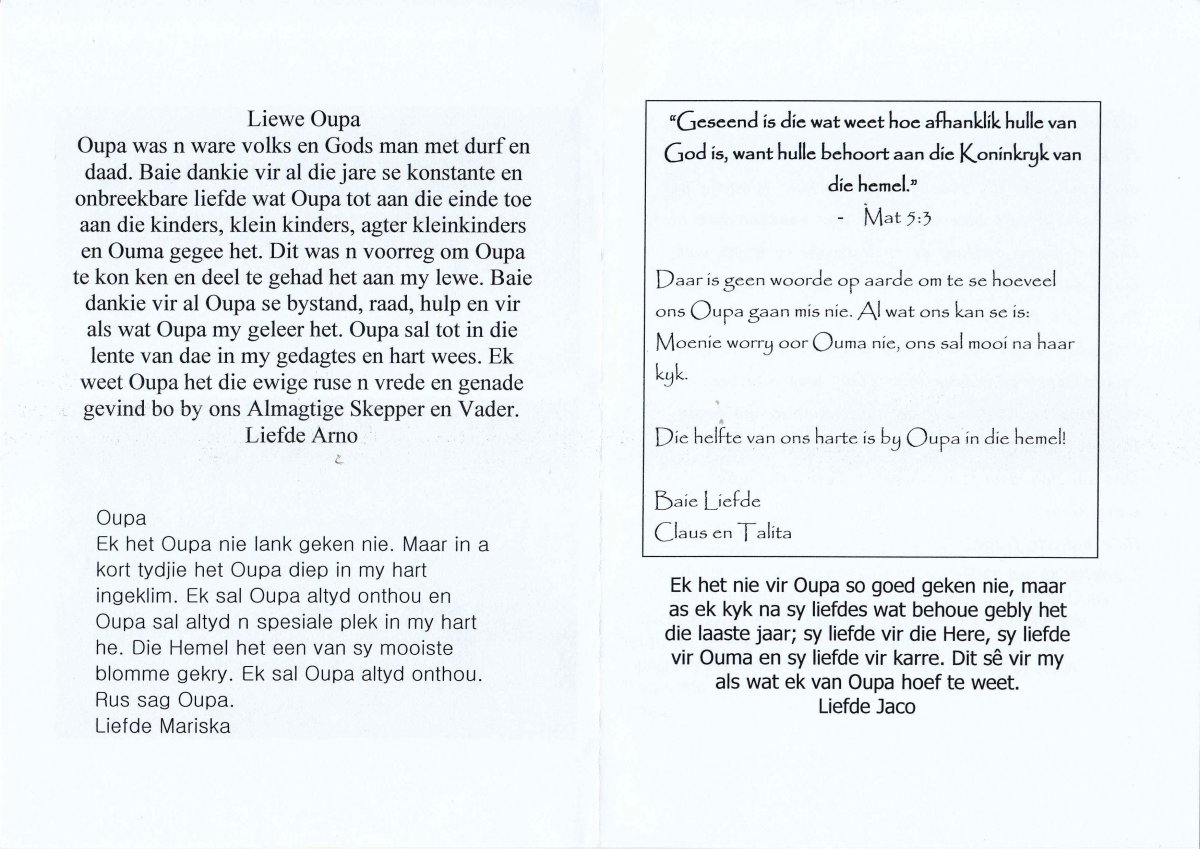 Liewe Oupa
Oupa was n ware volks en Gods man met durf en
daad. Baie dankie vir al die jare se konstante en
onbreekbare liefde wat Oupa tot aan die einde toe
aan die kinders, klein kinders, agter kleinkinders
en Ouma gegee het. Dit was n voorreg om Oupa
te kon ken en deel te gehad het aan my lewe. Baie
dankie vir al Oupa se bystand, raad, hulp en vir
als wat Oupa my geleer het. Oupa sal tot in die
lente van dae in my gedagtes en hart wees. Ek
weet Oupa het die ewige ruse n vrede en genade
gevind bo by ons Almagtige Skepper en Vader.
Liefde Arno
Oupa
Ek het Oupa nie lank geken nie. Maar in a
kort tydjie het Oupa diep in my hart
ingeklim. Ek sal Oupa altyd onthou en
Oupa sal altyd n spesiale plek in my hart
he. Die Hemel het een van sy mooiste
blomme gekry. Ek sal Oupa altyd onthou.
Rus sag Oupa.
Liefde Mariska
“Geseend is die wat weet hoe afhanklik hulle van
God is, want hulle behoort aan die Koninkryk van
die hemel.”
- Mat 5:3
Daar is geen woorde op aarde om te se hoeveel
ons Oupa gaan mis nie. Al wat ons kan se is:
Moenie worry oor Ouma nie, ons sal mooi na haar
kyk.
Die helfte van ons harte is by Oupa in die hemel!
Baie Liefde
Claus en Talita
Ek het nie vir Oupa so goed geken nie, maar
as ek kyk na sy liefdes wat behoue gebly het
die laaste jaar; sy liefde vir die Here, sy liefde
vir Ouma en sy liefde vir karre. Dit sê vir my
als wat ek van Oupa hoef te weet.
Liefde Jaco